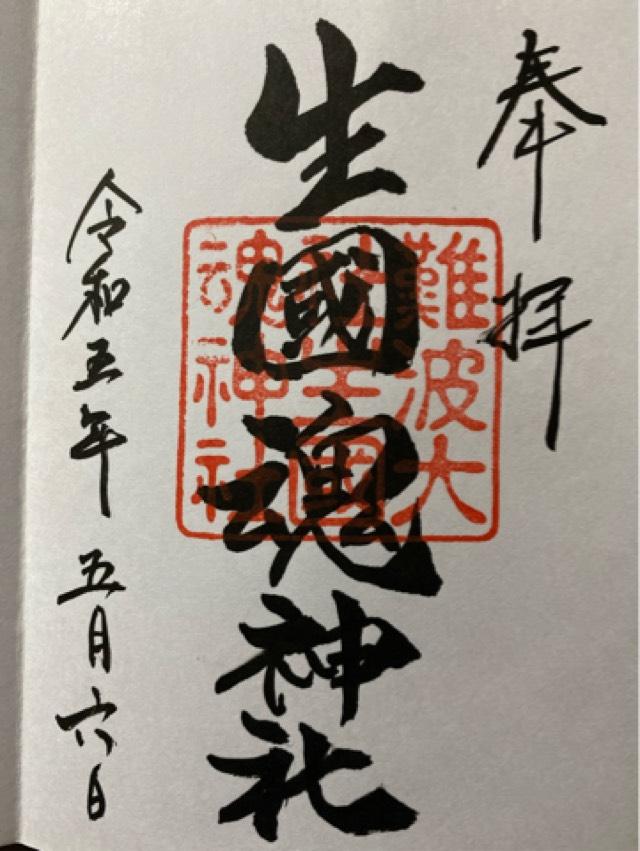 奉拝
生國魂神社
難波大
社生國
魂神社
令和五年 五月六日